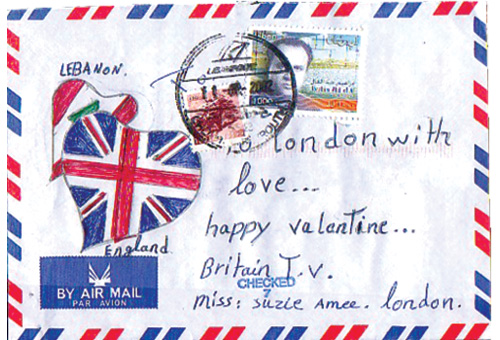 LEBANON.
To London with
love...
happy valentine...
England.
Britain T.V.
CHECKED
7
miss: suzie Amee. london.
BY AIR MAIL
PAR AVION